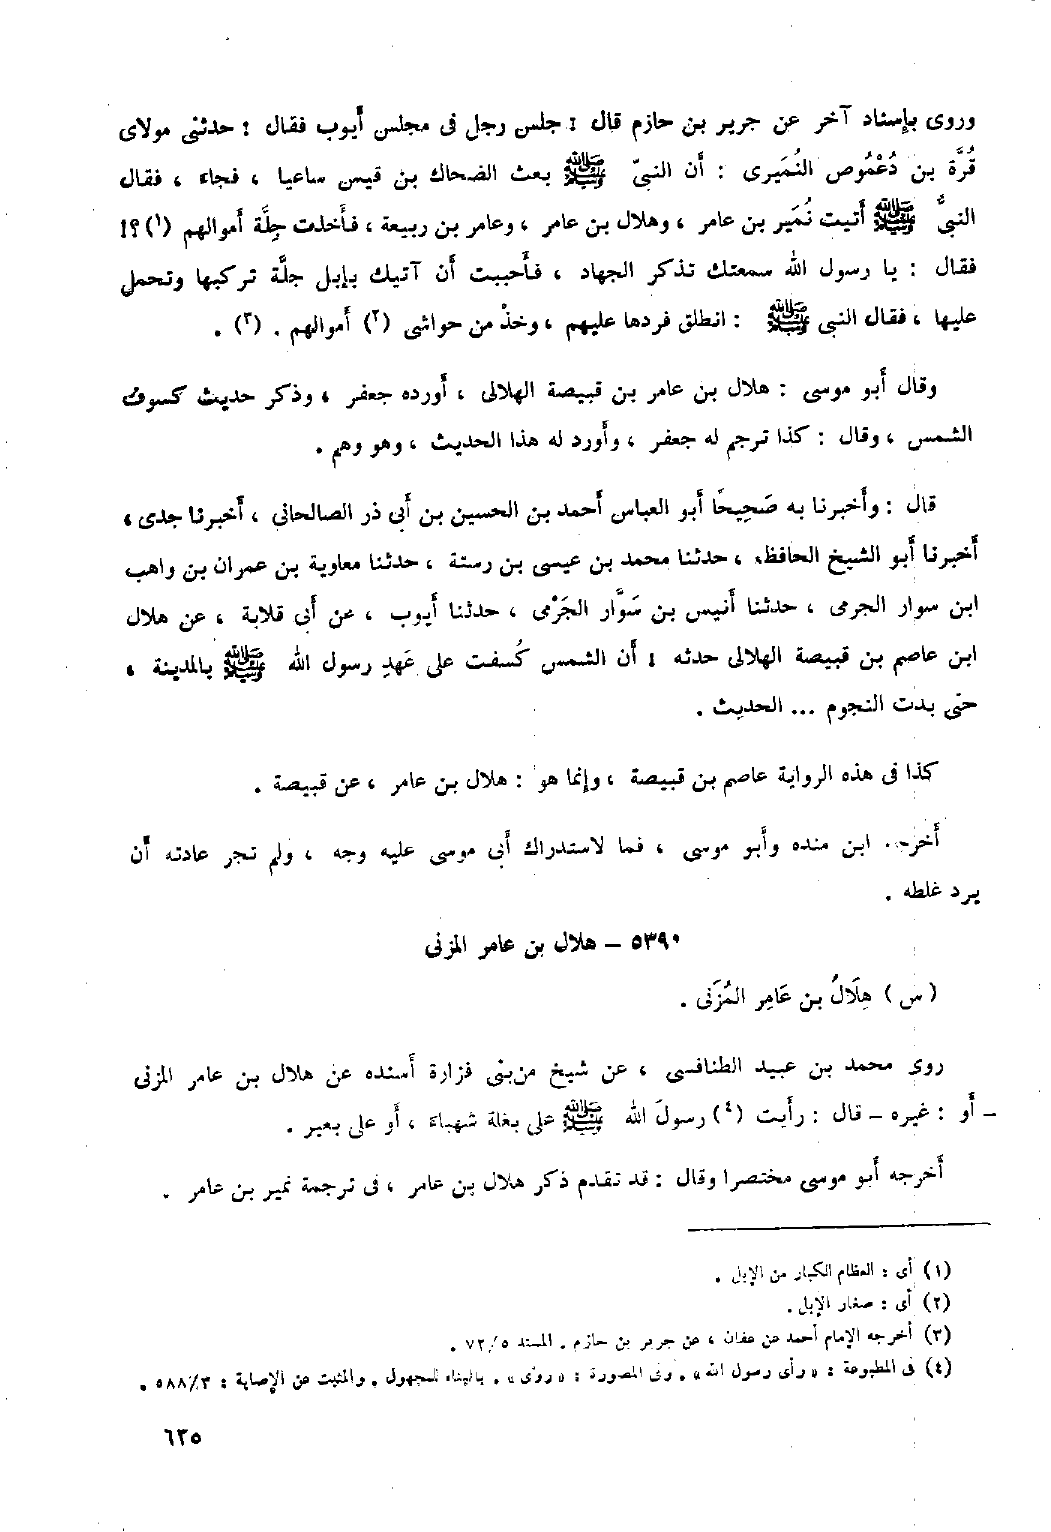 وروى بإسناد آخر عن جرير بن حازم قال : جلس رجل فى مجلس أيوب فقال : حدثنى مولاى
قُرَّة بن دُعْمُوص النُمَيرى : أن النبىّ ﷺ بعث الضحاك بن قيس ساعيا ، فجاء ، فقال
النبىُّ ﷺ أتيت نُمَير بن عامر ، وهلال بن عامر ، وعامر بن ربيعة ، فأخذت جِلَّة أموالهم (١) ؟!
فقال : يا رسول الله سمعتك تذكر الجهاد ، فأحببت أن آتيك بإبل جلَّة تركبها وتحمل
عليها ، فقال النبى ﷺ : انطلق فردها عليهم ، وخذْ من حواشى (٢) أموالهم . (٣) .
وقال أبو موسى : هلال بن عامر بن قبيصة الهلالى ، أورده جعفر ، وذكر حديث كسوف
الشمس ، وقال : كذا ترجم له جعفر ، وأورد له هذا الحديث ، وهو وهم .
قال : وأخبرنا به صَحِيحًا أبو العباس أحمد بن الحسين بن أبى ذر الصالحانى ، أخبرنا جدى ،
أخبرنا أبو الشيخ الحافظ ، حدثنا محمد بن عيسى بن رستة ، حدثنا معاوية بن عمران بن واهب
ابن سوار الجرمى ، حدثنا أنيس بن سَوَّار الجَرْمى ، حدثنا أيوب ، عن أبى قلابة ، عن هلال
ابن عاصم بن قبيصة الهلالى حدثه : أن الشمس كُسفت على عَهدِ رسول الله ﷺ بالمدينة ،
حتى بدت النجوم ... الحديث .
كذا فى هذه الرواية عاصم بن قبيصة ، وإنما هو : هلال بن عامر ، عن قبيصة .
أخرجه ابن منده وأبو موسى ، فما لاستدراك أبى موسى عليه وجه ، ولم تجر عادته أن
يرد غلطه .
٥٣٩٠ – هلال بن عامر المزنى
( س ) هِلَالُ بن عَامِر المُزَنى .
روى محمد بن عبيد الطنافسى ، عن شيخ من بنى فزارة أسنده عن هلال بن عامر المزنى
– أو : غيره – قال : رأيت (٤) رسولَ الله ﷺ على بغلة شهباءَ ، أو على بعير .
أخرجه أبو موسى مختصرا وقال : قد تقدم ذكر هلال بن عامر ، فى ترجمة نمير بن عامر .
(١) أى : العظام الكبار من الإبل .
(٢) أى : صغار الإبل .
(٣) أخرجه الإمام أحمد عن عفان ، عن جرير بن حازم . المسند ٥/ ٧٢ .
(٤) فى المطبوعة : « رأى رسول الله » . وفى المصورة : « روُى » . بالبناء للمجهول . والمثبت عن الإصابة : ٣/ ٥٨٨ .
٦٢٥